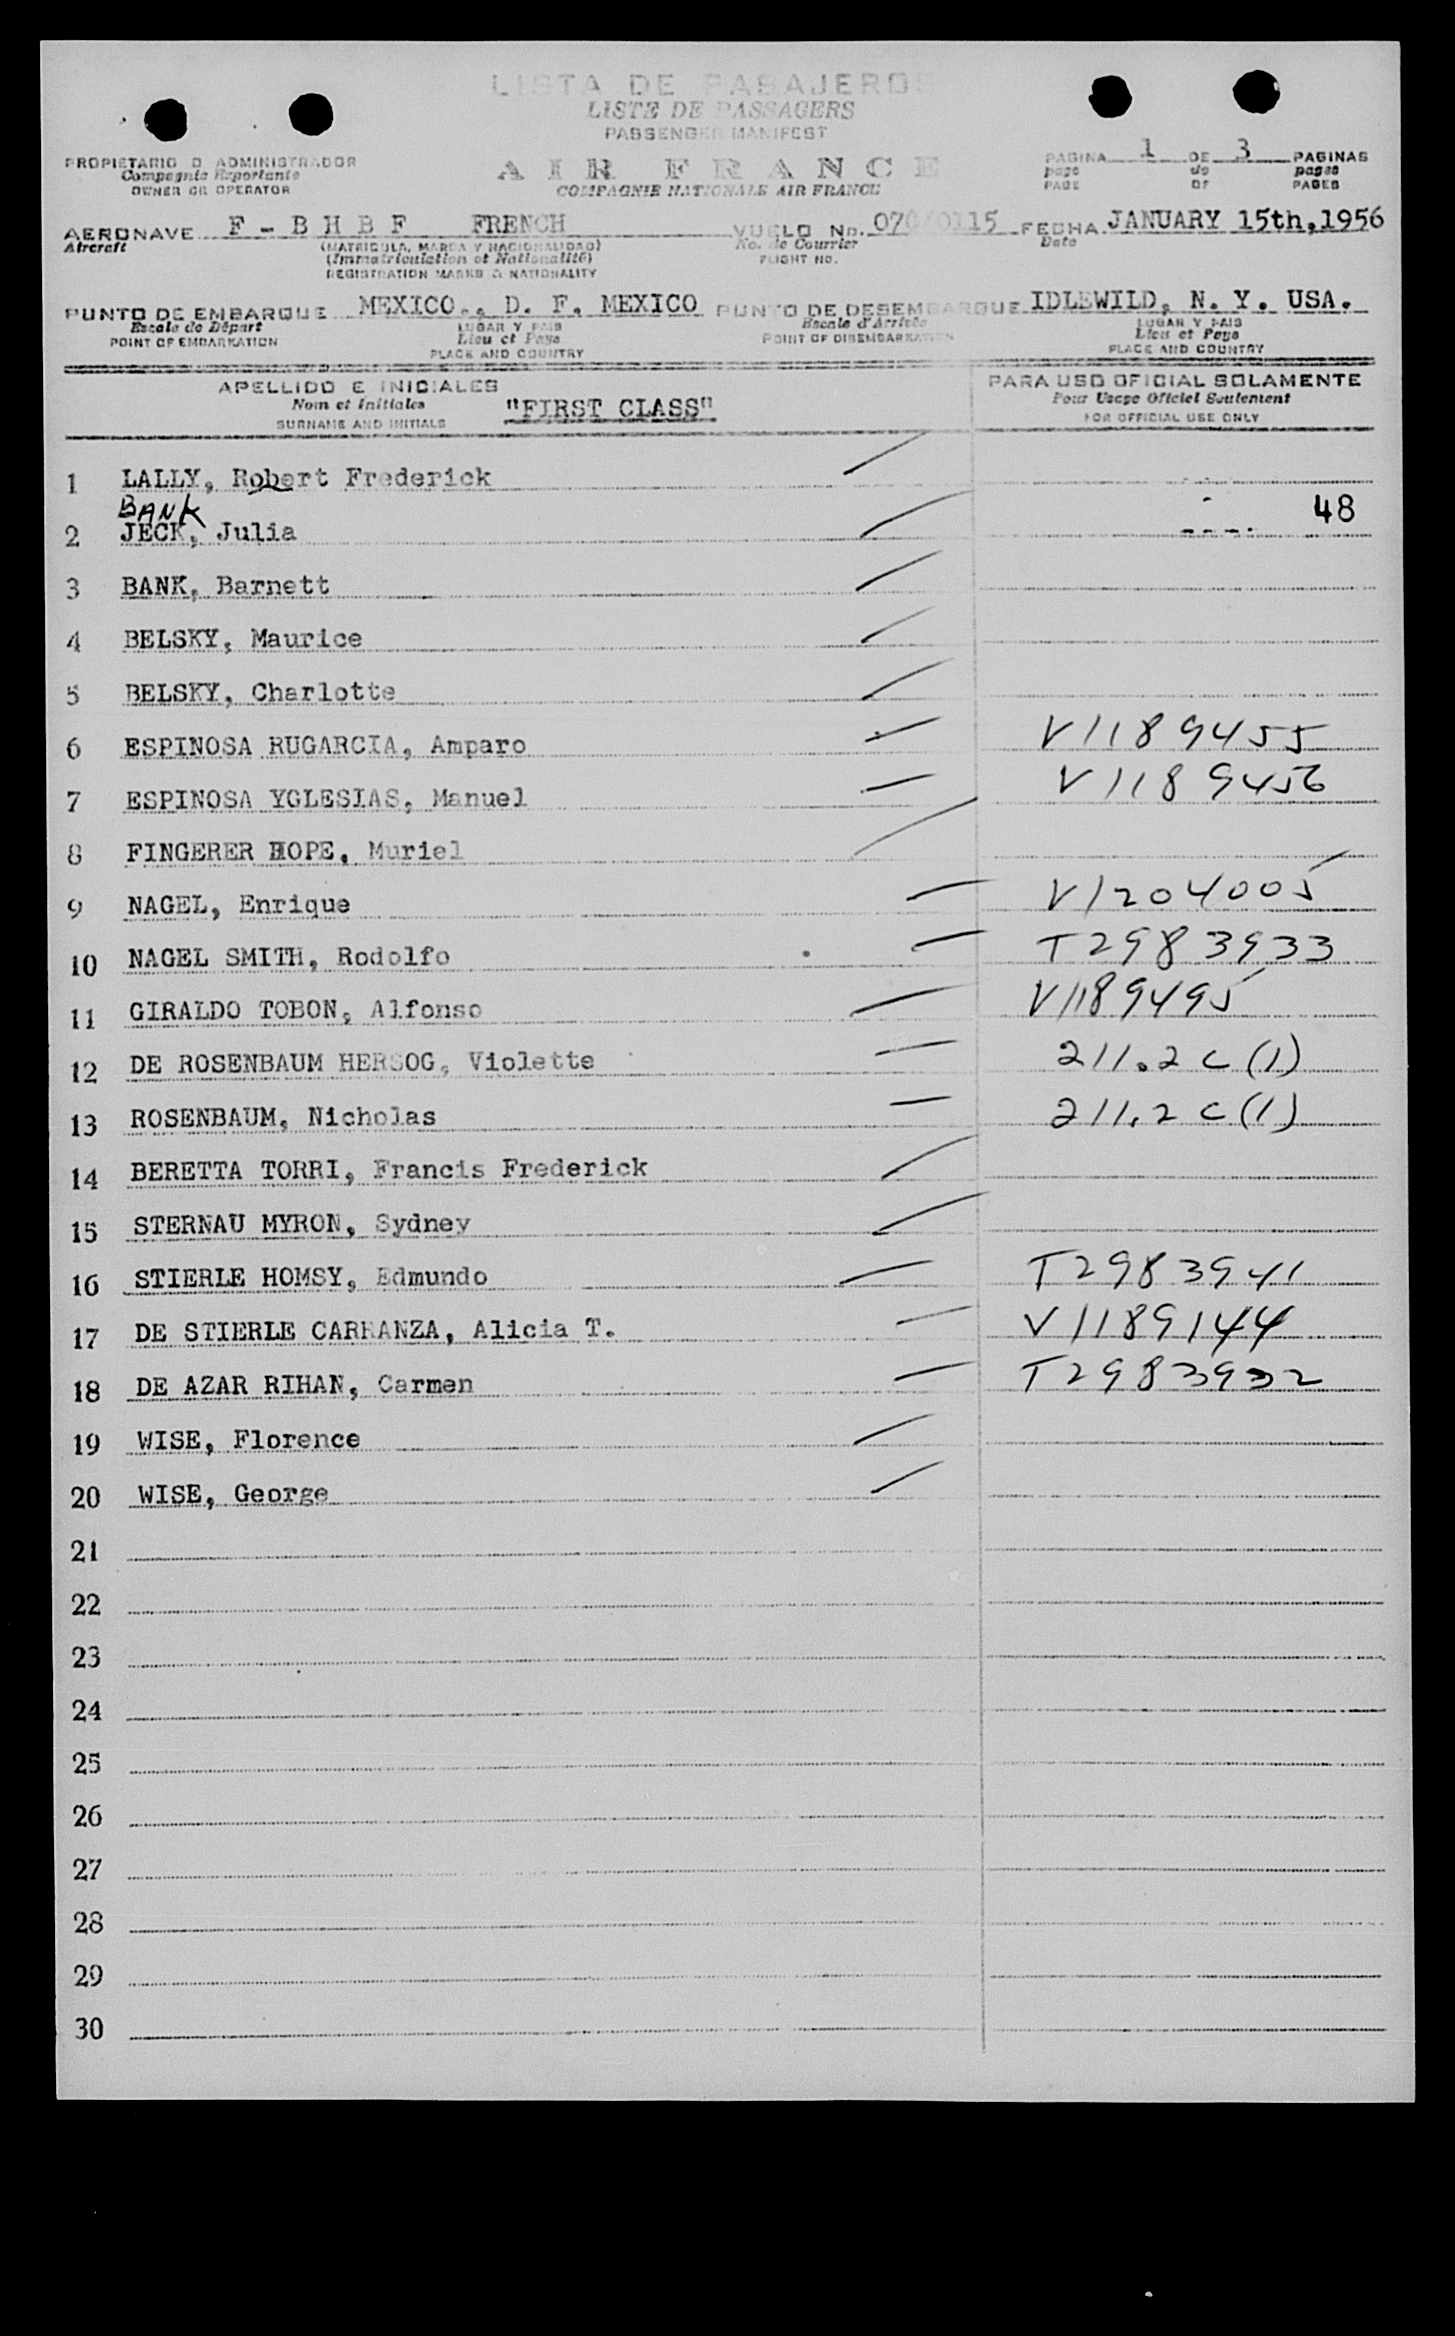 LISTA DE PASAJEROS
LISTE DE PASSAGERS
PASSENGER MANIFEST
PROPIETARIO O ADMINISTRADOR
Compagnie Exportante
OWNER OR OPERATOR
AIR FRANCE
COMPAGNIE NATIONALE AIR FRANCE
PAGINA 1 DE 3 PAGINAS
page de pages
PAGE OF PAGES
AERONAVE F - B H B F FRENCH VUELO No. 070/0115 FECHA JANUARY 15th,1956
Aircraft (MATRICULA, MARCA Y NACIONALIDAD) No. de Courrier Date
(Immatriculation et Nationalité) FLIGHT NO.
REGISTRATION MARKS & NATIONALITY
PUNTO DE EMBARQUE MEXICO., D. F. MEXICO PUNTO DE DESEMBARQUE IDLEWILD, N. Y. USA.
Escale de Départ LUGAR Y PAIS Escale d'Arrivée LUGAR Y PAIS
POINT OF EMBARKATION Lieu et Pays POINT OF DISEMBARKATION Lieu et Pays
PLACE AND COUNTRY PLACE AND COUNTRY
APELLIDO E INICIALES PARA USO OFICIAL SOLAMENTE
Nom et Initiales "FIRST CLASS" Pour Usage Officiel Seulement
SURNAME AND INITIALS FOR OFFICIAL USE ONLY
1 LALLY, Robert Frederick
BANK 48
2 JECK, Julia
3 BANK, Barnett
4 BELSKY, Maurice
5 BELSKY, Charlotte
6 ESPINOSA RUGARCIA, Amparo V1189455
7 ESPINOSA YGLESIAS, Manuel V1189456
8 FINGERER HOPE, Muriel
9 NAGEL, Enrique V1204005
10 NAGEL SMITH, Rodolfo T2983933
11 GIRALDO TOBON, Alfonso V1189495
12 DE ROSENBAUM HERSOG, Violette 211.2 c (1)
13 ROSENBAUM, Nicholas 211.2 c (1)
14 BERETTA TORRI, Francis Frederick
15 STERNAU MYRON, Sydney
16 STIERLE HOMSY, Edmundo T2983941
17 DE STIERLE CARRANZA, Alicia T. V1189144
18 DE AZAR RIHAN, Carmen T2983932
19 WISE, Florence
20 WISE, George
21
22
23
24
25
26
27
28
29
30